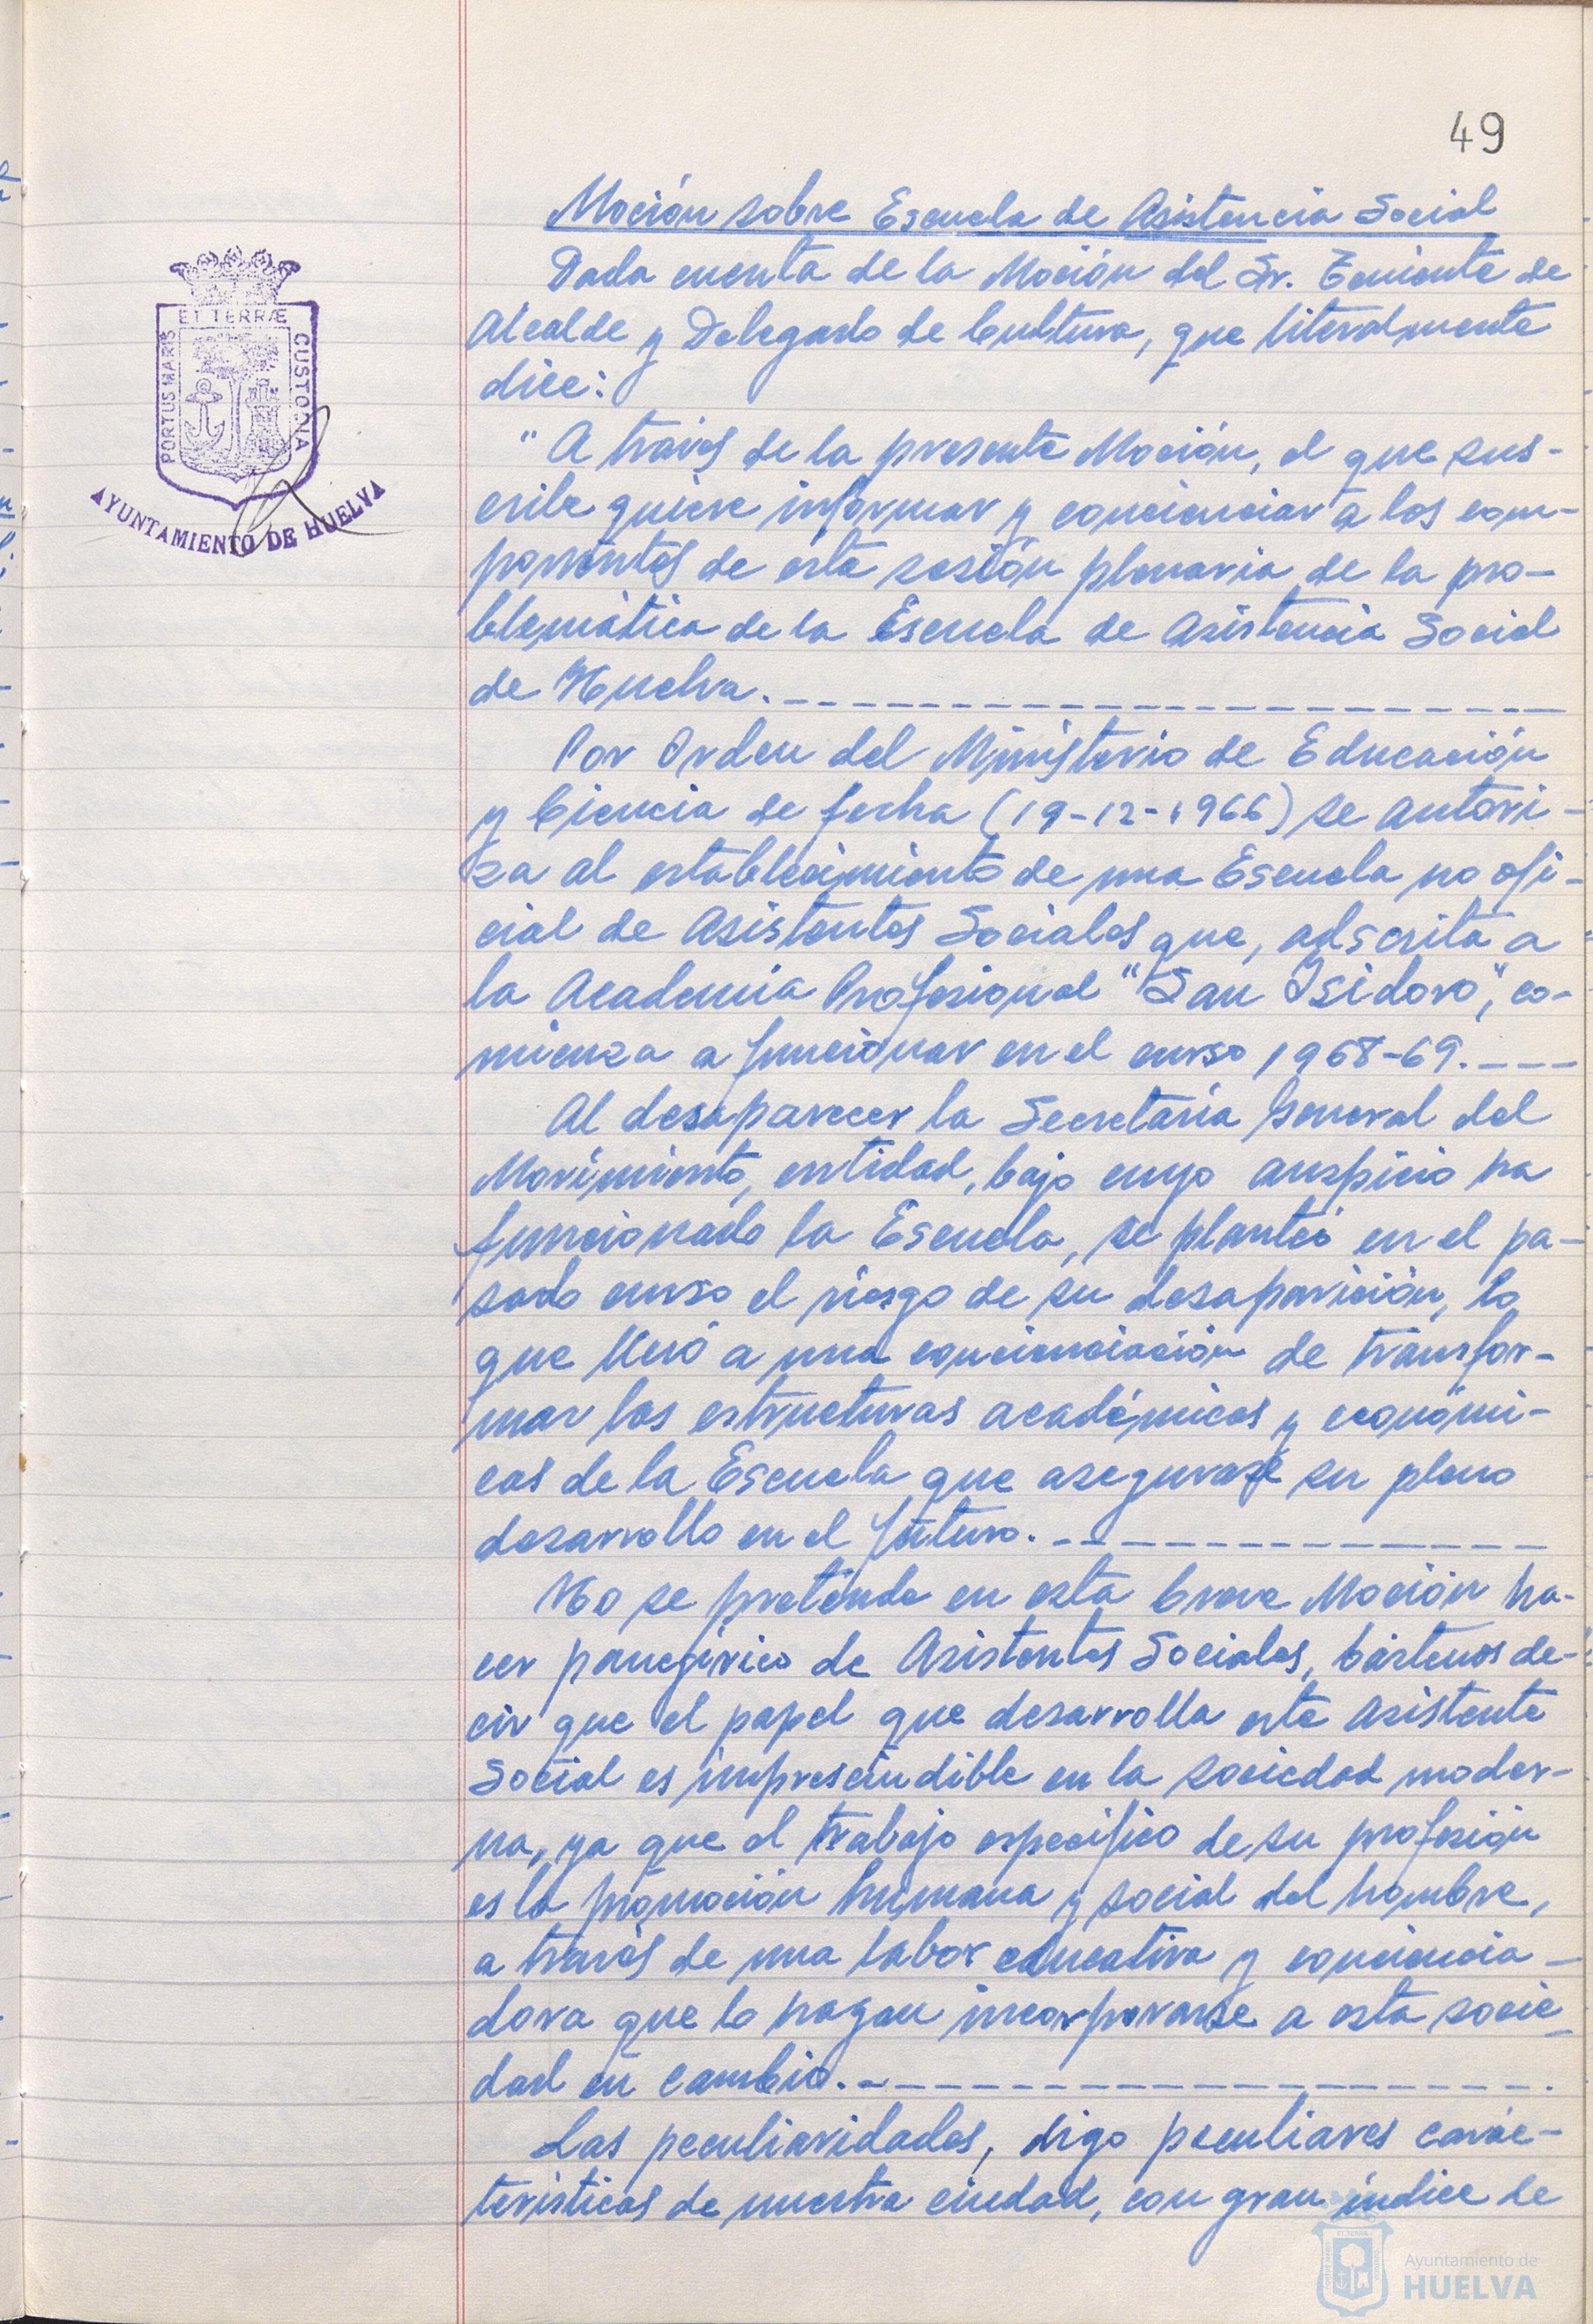 49
Moción sobre Escuela de Asistencia Social
Dada cuenta de la Moción del Sr. Teniente de
Alcalde y Delegado de Cultura, que literalmente
dice:
" A través de la presente Moción, el que sus-
cribe quiere informar y concienciar a los com-
ponentes de esta sesión plenaria de la pro-
blemática de la Escuela de Asistencia Social
de Huelva.
Por Orden del Ministerio de Educación
y Ciencia de fecha (19-12-1966) se autori-
za al establecimiento de una Escuela no ofi-
cial de Asistentes Sociales que, adscrita a
la Academia Profesional "San Isidoro", co-
mienza a funcionar en el curso 1968-69.
Al desaparecer la Secretaría General del
Movimiento, entidad, bajo cuyo auspicio ha
funcionado la Escuela, se planteó en el pa-
sado curso el riesgo de su desaparición, lo
que llevó a una concienciación de transfor-
mar las estructuras académicas y económi-
cas de la Escuela que asegurase su pleno
desarrollo en el futuro.
No se pretende en esta breve Moción ha-
cer panegírico de Asistentes Sociales, bástenos de-
cir que el papel que desarrolla este Asistente
Social es imprescindible en la sociedad moder-
na, ya que el trabajo específico de su profesión
es la promoción humana y social del hombre,
a través de una labor educativa y conciencia-
dora que lo hagan incorporarse a esta socie-
dad en cambio.
Las peculiaridades, digo peculiares carac-
terísticas de nuestra ciudad, con gran índice de
PORTUS MARIS ET TERRÆ CUSTODIA
AYUNTAMIENTO DE HUELVA
Ayuntamiento de
HUELVA